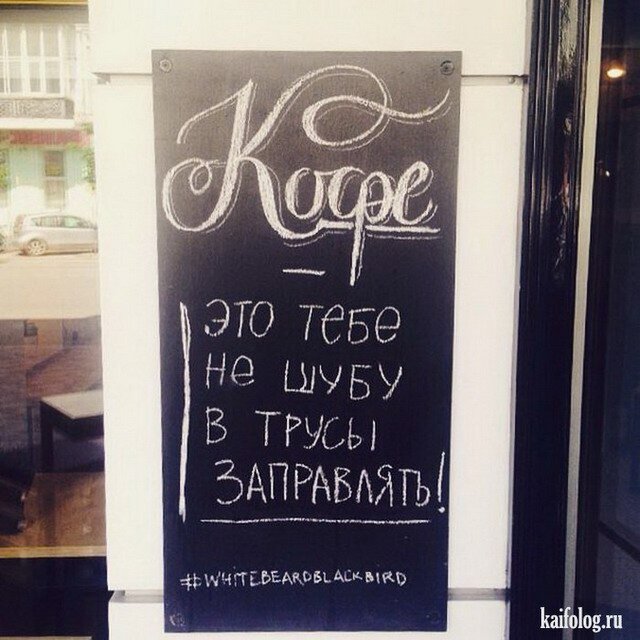 Кофе
—
ЭТО ТЕБЕ
НЕ ШУБУ
В ТРУСЫ
ЗАПРАВЛЯТЬ!
#WHITEBEARDBLACKBIRD
kaifolog.ru